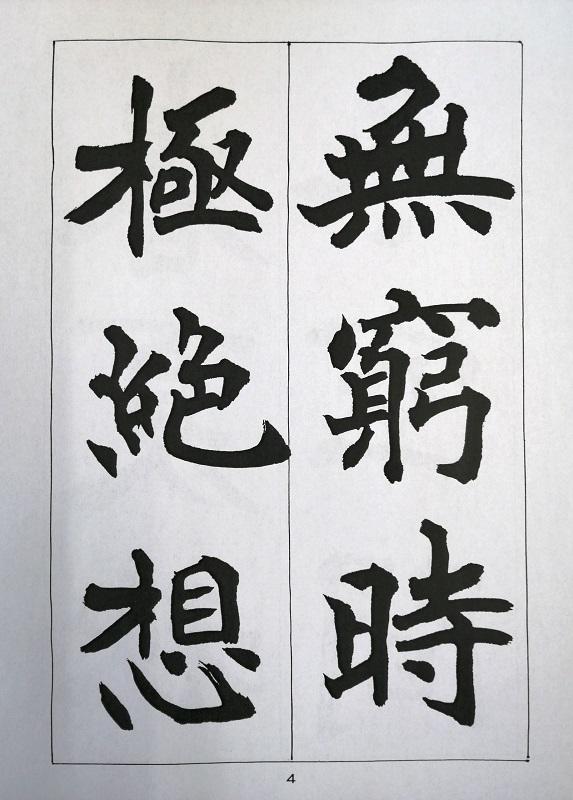 無窮時
極絶想
4